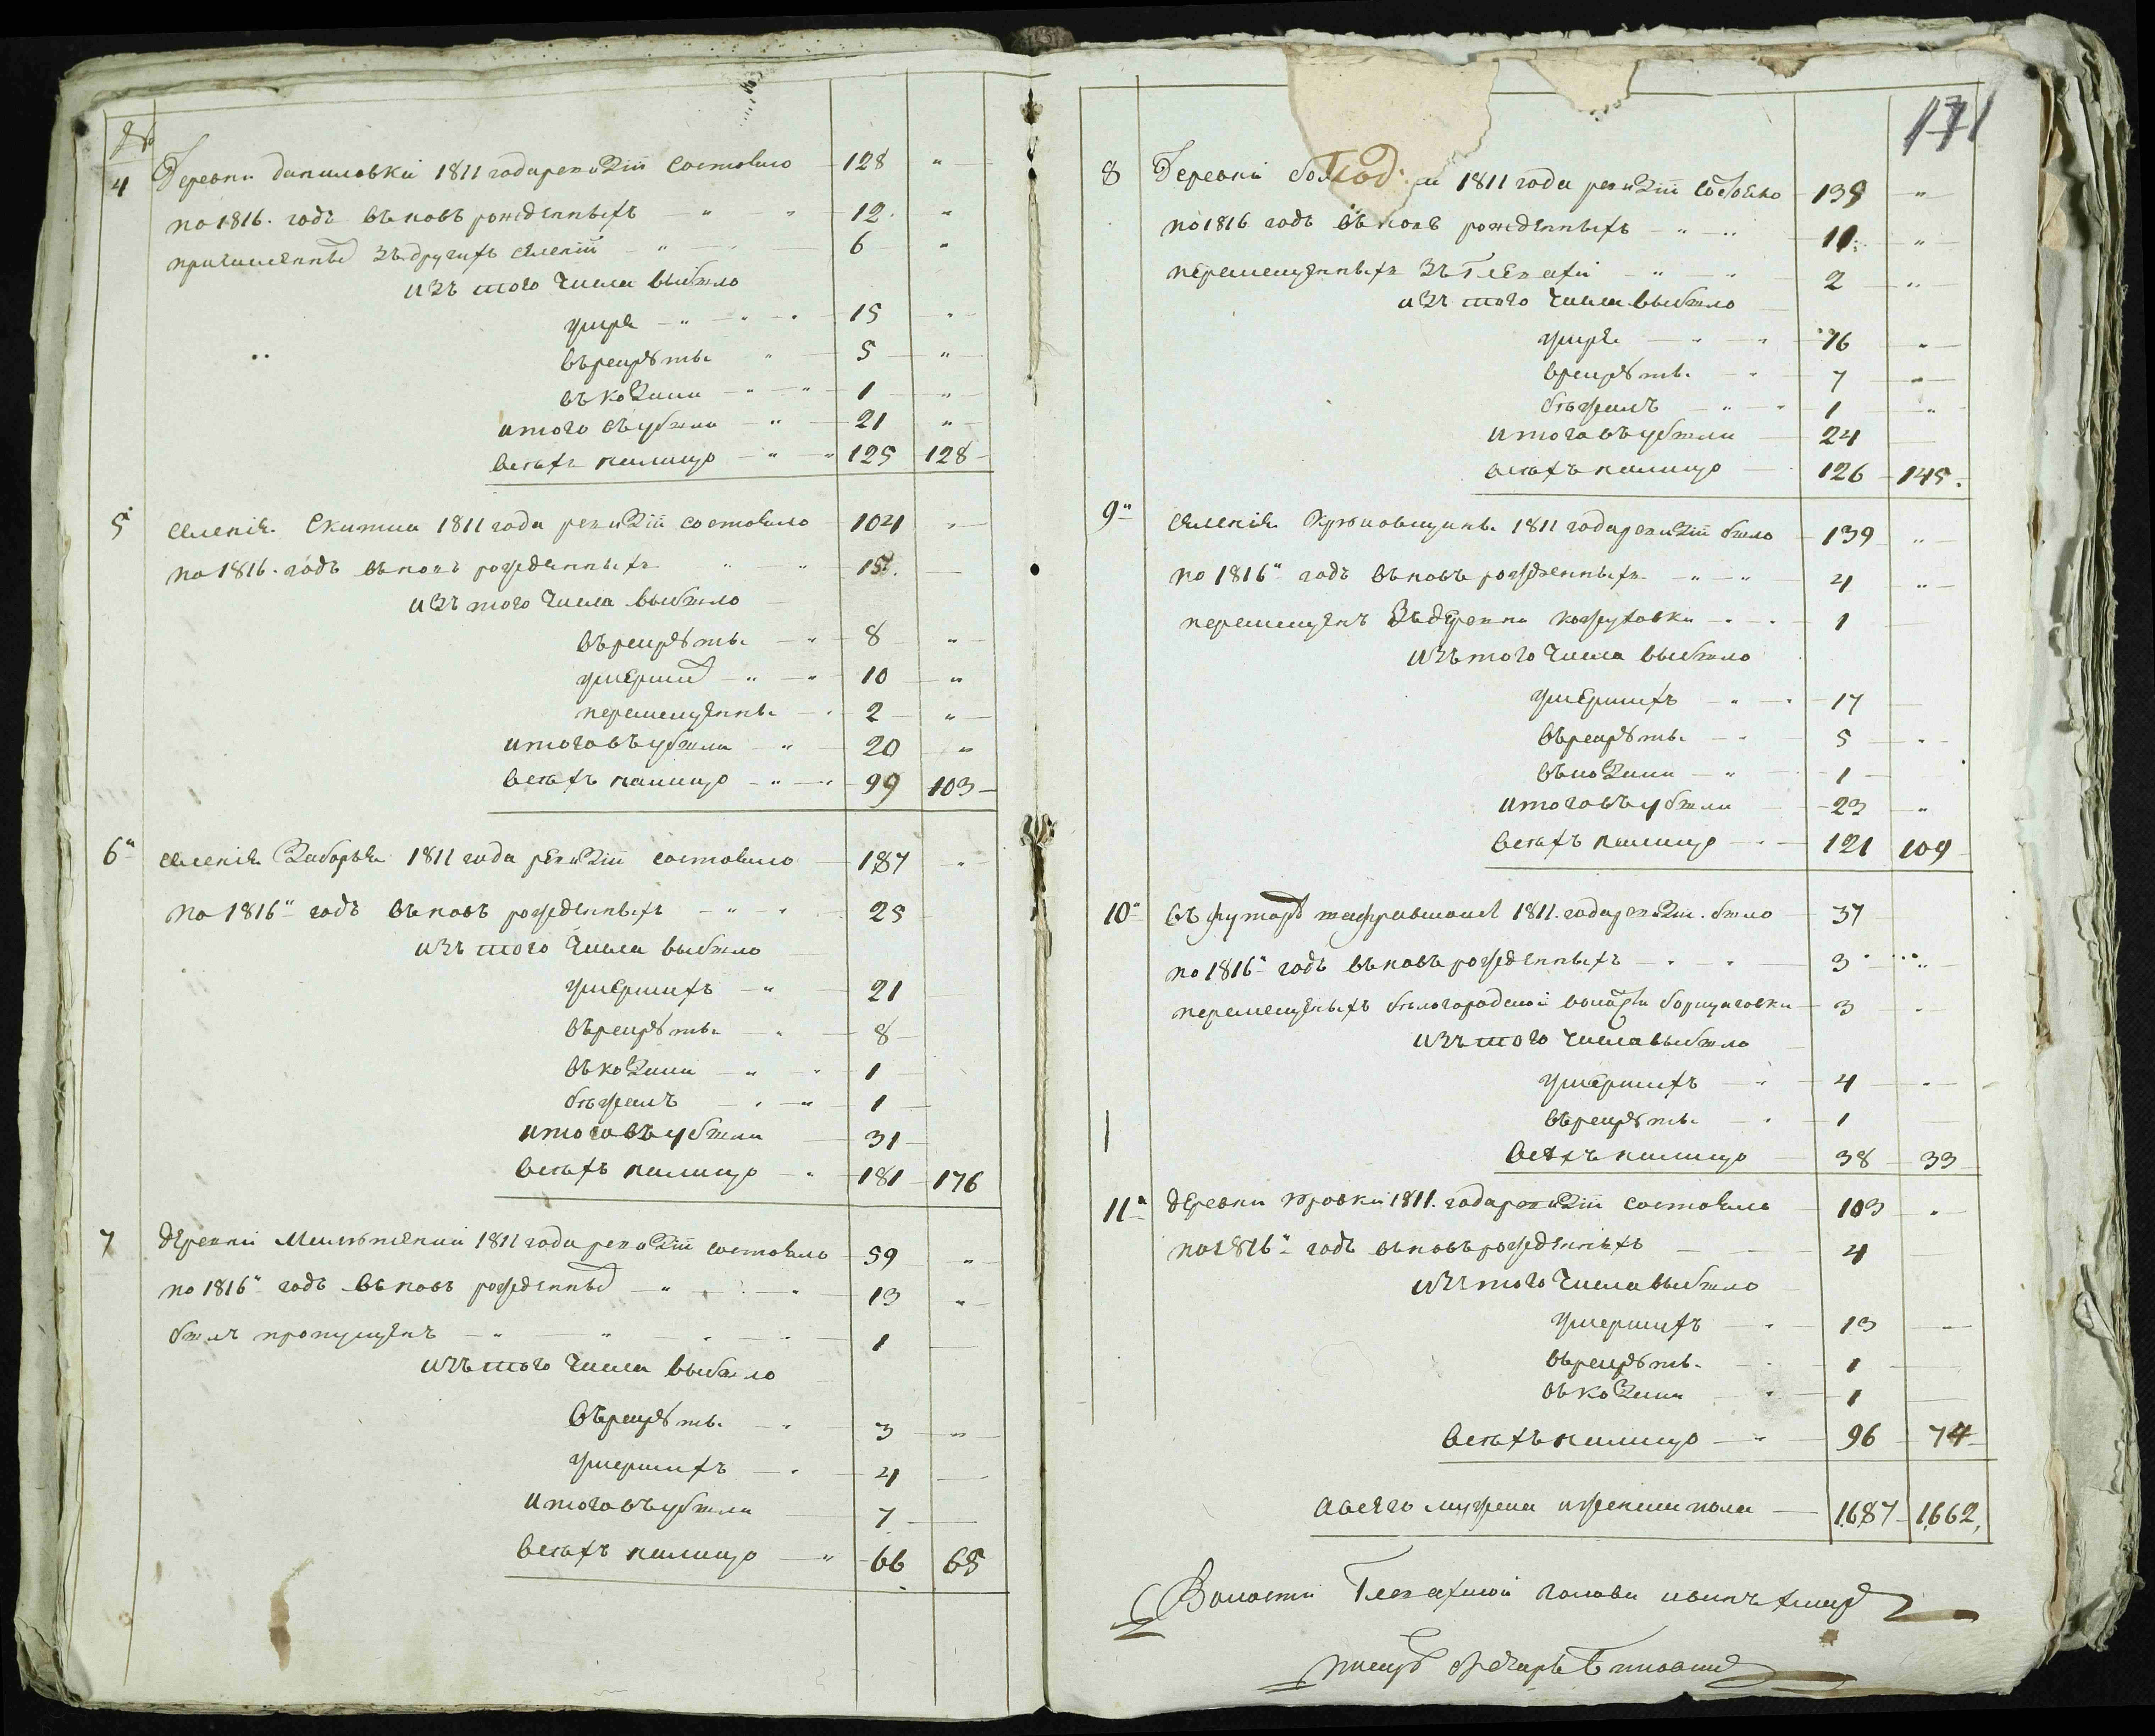 №
4 Деревни даниловки 1811 года ревизіи состояло 128 "
по 1816. годъ въ новъ рожденныхъ " " 12. "
причисленные зъ другихъ селеній " 6 "
изъ того числа выбыло
умре " " 15 "
въ рекруты " 5 "
въ козаки " " 1 "
итого въ убыли " 21 "
всехъ налицо " " 125 128
5 селенія Скитка 1811 года ревизіи состояло 104 "
по 1816. годъ въ новъ рожденныхъ " " 15.
изъ того числа выбыло
въ рекруты " 8 "
умерши " " 10 "
перемещенны 2 "
итого въ убыли " 20 "
всехъ налицо " " 99 103
6" селенія Заборья 1811 года ревизіи состояло 187 "
по 1816" годъ въ новъ рожденныхъ " " 25
изъ того числа выбыло
умершихъ " 21
въ рекруты " 8
въ козаки " " 1
бежалъ " " 1
итого въ убыли 31
всехъ налицо " 181 176
7 деревни 1811 года ревизіи состояло 59 "
по 1816" годъ въ новъ рожденные " " 13 "
былъ пропущенъ " " " 1
изъ того числа выбыло
въ рекруты " 3 "
умершихъ " 4
итого въ убыли 7
всехъ налицо " 66 65
171
8 Деревни 1811 года ревизіи состояло 139 "
по 1816 годъ въ новъ рожденныхъ " " 11. "
перемещенныхъ зъ Глевахи " " 2 "
изъ того числа выбыло
умре " " 16 "
в рекруты " 7 "
бежалъ " " 1 "
итого въ убыли 24
всехъ налицо 126 145.
9" селенія Крюковщины 1811 года ревизіи было 139 "
по 1816" годъ въ новъ рожденныхъ " " 4 "
перемещенъ зъ деревни кожуховки " " 1
изъ того числа выбыло
умершихъ " " 17
въ рекруты " 5 "
въ козаки " 1
итого въ убыли 23 "
всехъ налицо " 121 109
10" въ футоре 1811. года ревизіи. было 37
по 1816" годъ въ новъ рожденныхъ " " 3 "
перемещеныхъ белогородской волости борщаговки 3 "
изъ того числа выбыло
умершихъ " 4 "
въ рекруты " 1
всехъ налицо 38 33
11" деревни юровки 1811. года ревизіи состояло 103 "
по 1816" годъ въ новъ рожденныхъ 4
изъ того числа выбыло
умершихъ " 13
въ рекруты " 1
въ козаки " 1
всехъ налицо " 96 74
а всего мужеска и женска пола 1687 1662,
Волости Глевахской голова иванъ
писарь